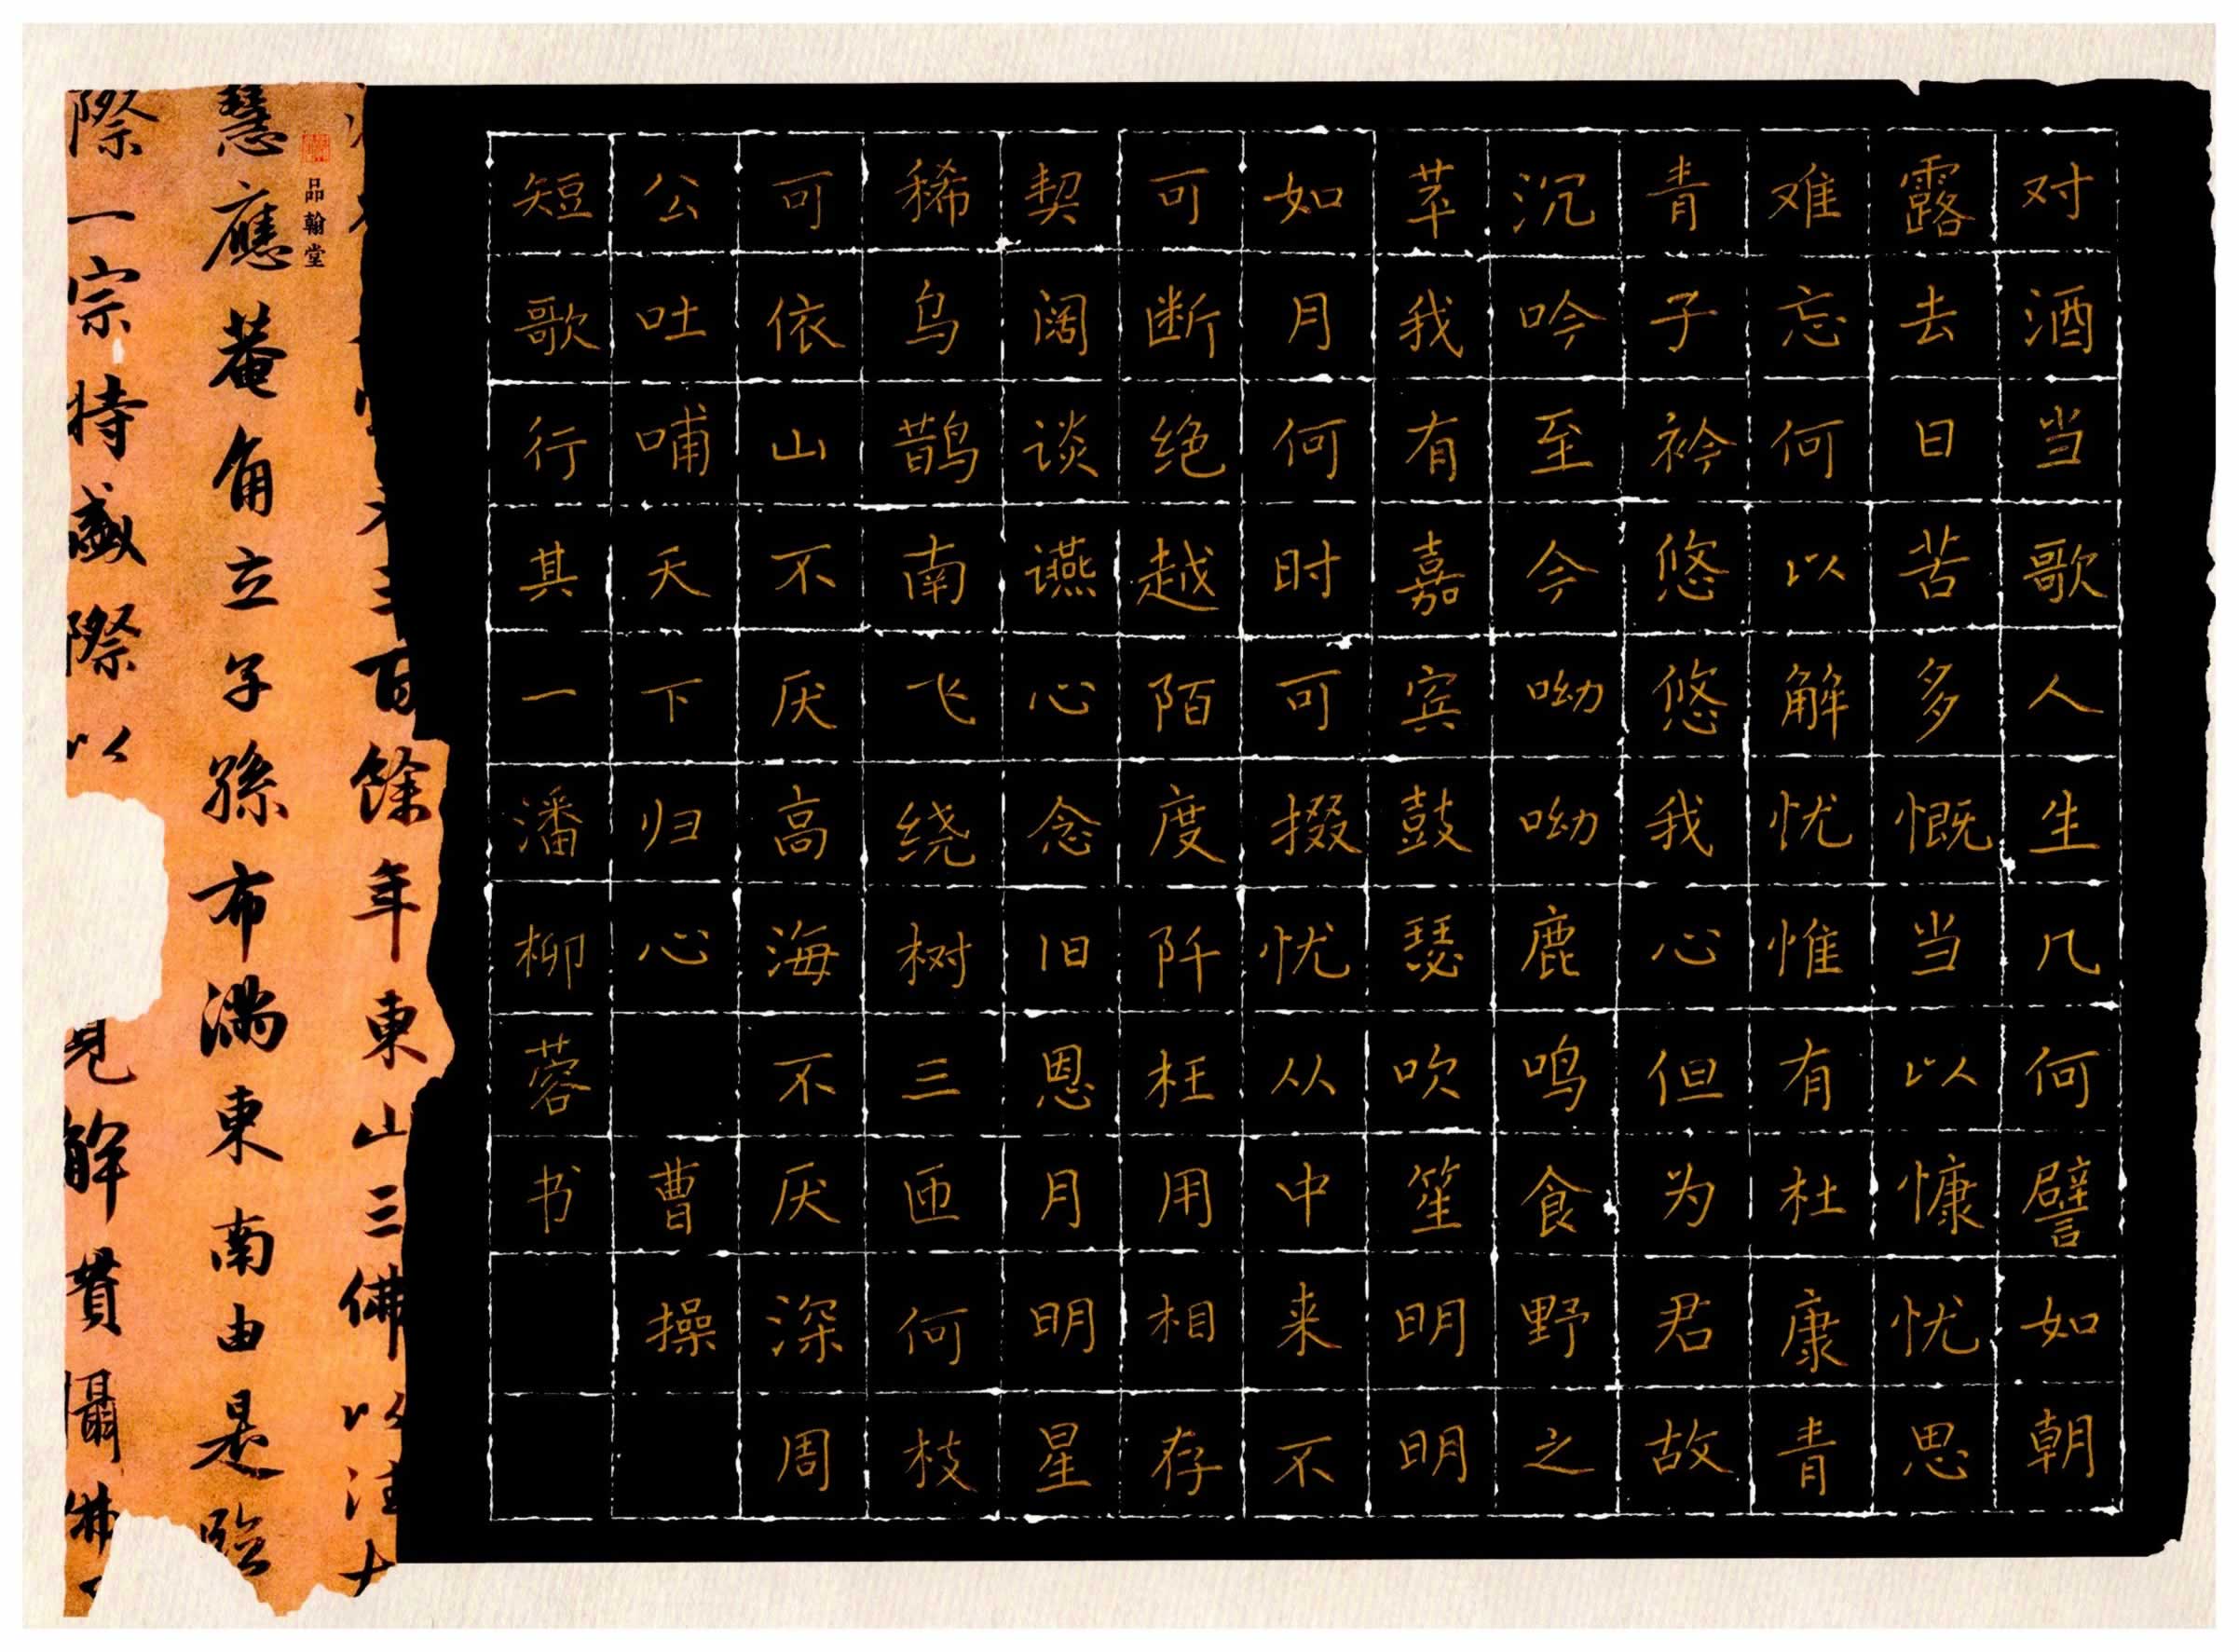 对酒当歌人生几何譬如朝
露去日苦多慨当以慷忧思
难忘何以解忧惟有杜康青
青子衿悠悠我心但为君故
沉吟至今呦呦鹿鸣食野之
苹我有嘉宾鼓瑟吹笙明明
如月何时可掇忧从中来不
可断绝越陌度阡枉用相存
契阔谈讌心念旧恩月明星
稀乌鹊南飞绕树三匝何枝
可依山不厌高海不厌深周
公吐哺天下归心 曹操
短歌行其一潘柳蓉书
百餘年東山三佛以
品翰堂
慧應菴角立子孫布满東南由是臨
際一宗特盛際以
見解貫